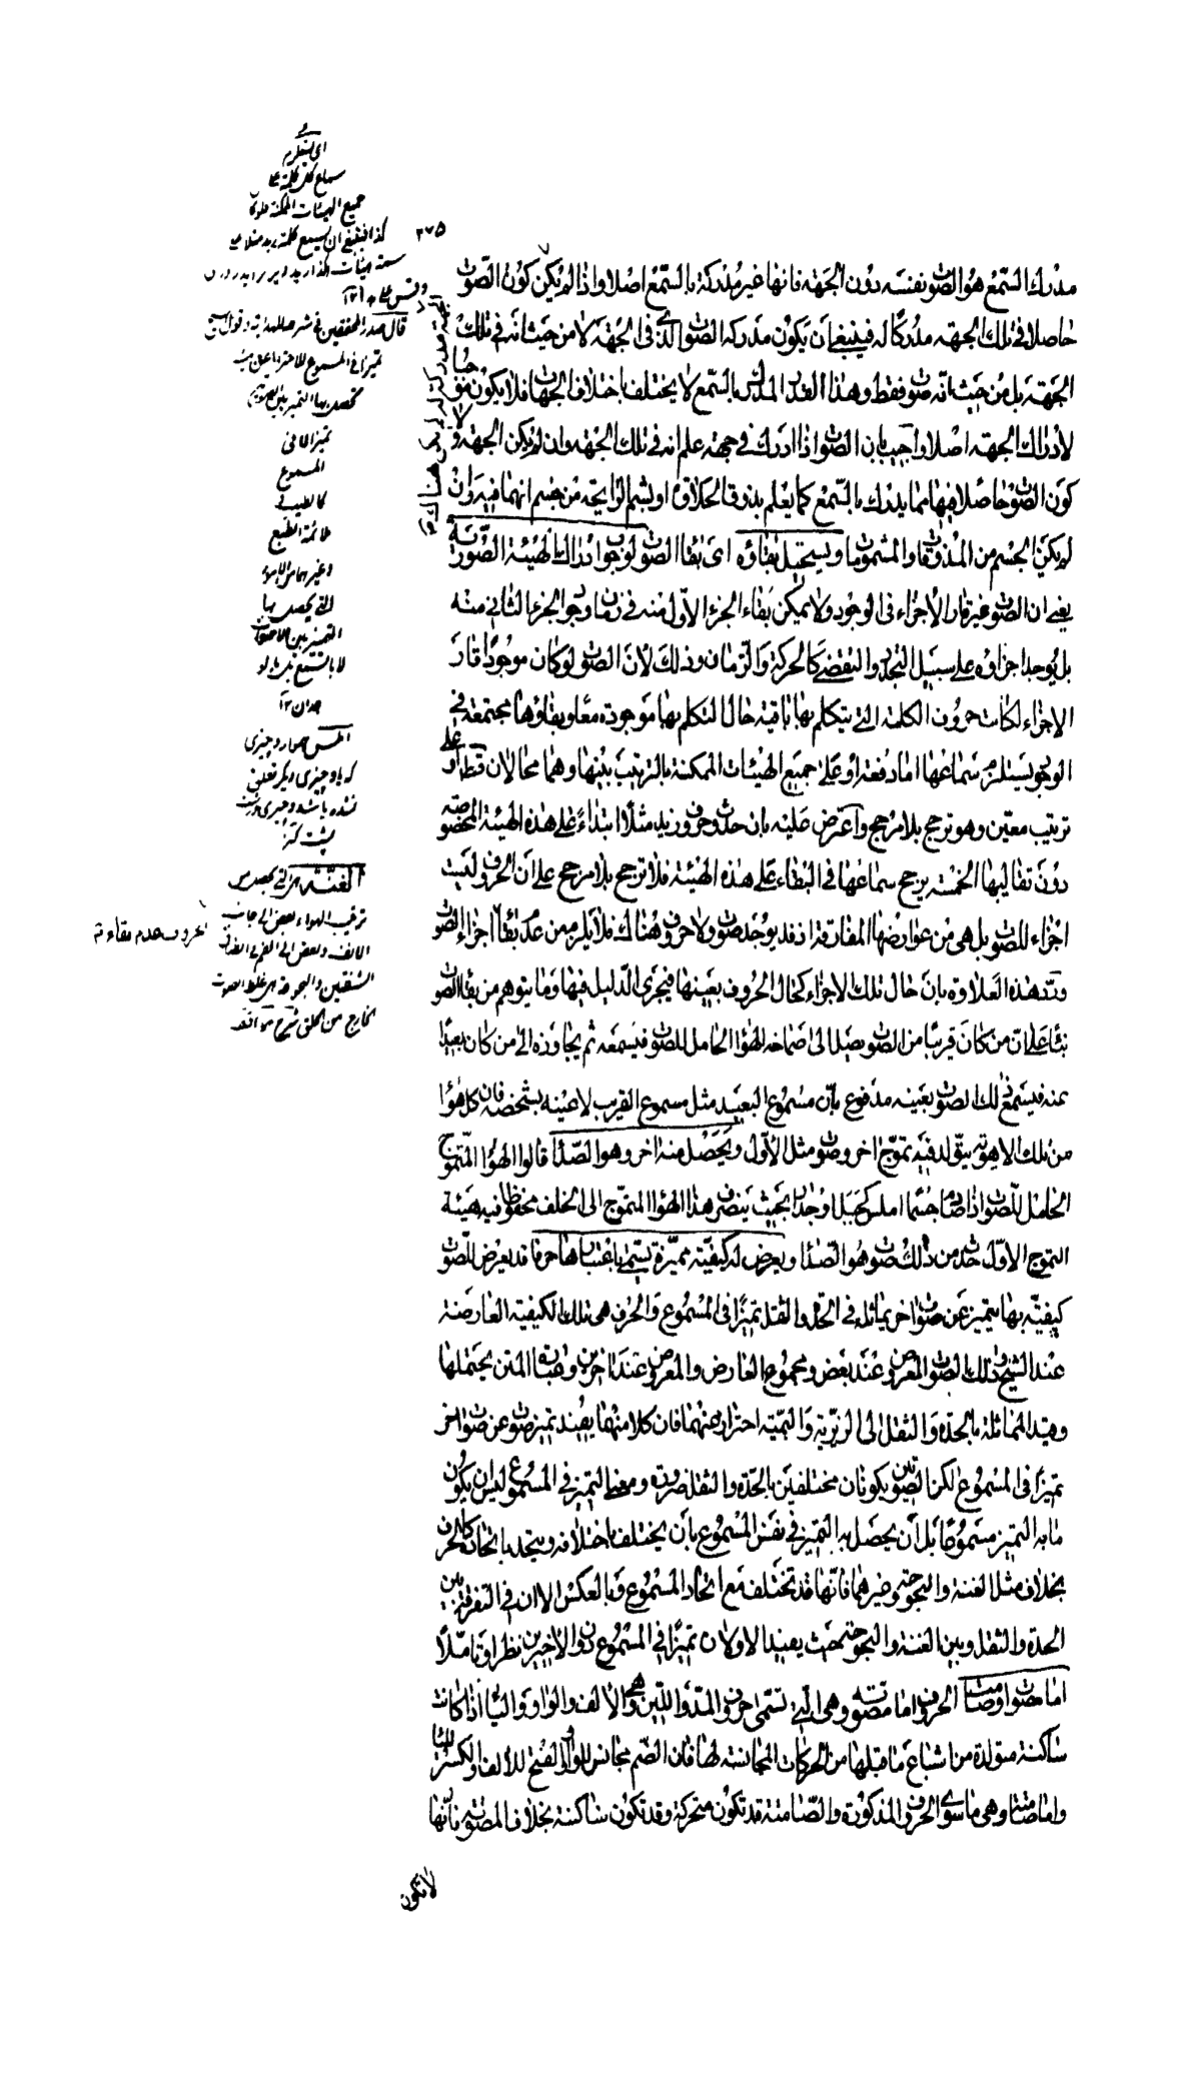 ٢٦٥
مدرك السمع هو الصوت نفسه دون الجهة فانها غير مدركة بالسمع اصلا واذا لم يكن كون الصوت
حاصلا فى تلك الجهة مدركا له فينبغى ان يكون مدركه الصوت الذى فى الجهة لا من حيث انه فى تلك
الجهة بل من حيث انه صوت فقط وهذا القدر المدرك بالسمع لا يختلف باختلاف الجهات فلا يكون موجبا
لادراك الجهة اصلا واجيب بان الصوت اذا ادرك فى جهة علم انه فى تلك الجهة وان لم يكن الجهة ولا
كون الصوت حاصلا فيها مما يدرك بالسمع كما يعلم بذوق الحلاوة او بشم الرايحة من جسم انهما فيه وان
لم يكن الجسم من المذوقات والمشمومات ويستحيل بقاؤه اى بقاء الصوت لوجوب ادراك الهيئة الصورية
يعنى ان الصوت غير قار الاجزاء فى الوجود ولا يمكن بقاء الجزء الاول منه فى زمان وجود الجزء الثانى منه
بل يوجد اجزاؤه على سبيل التجدد والتقضى كالحركة والزمان وذلك لان الصوت لو كان موجودا قار
الاجزاء لكانت حروف الكلمة التى يتكلم بها باقية حال التكلم بها موجودة معا وبقاؤها مجتمعة فى
الوجود يستلزم سماعها اما دفعة او على جميع الهيئات الممكنة بالترتيب بينها وهما محالان قطعا او على
ترتيب معين وهو ترجح بلا مرجح واعترض عليه بان حدوث حروف زيد مثلا ابتداء على هذه الهيئة المخصوصة
دون تقاليبها الخمسة يرجح سماعها فى البقاء على هذه الهيئة فلا ترجح بلا مرجح على ان الحروف ليست
اجزاء للصوت بل هى من عوارضها المفارقة اذ قد يوجد صوت ولا حروف هناك فلا يلزم من عدم بقائها اجزاء الصوت
وتدهذه العلاوة بان حال تلك الاجزاء كحال الحروف بعينها فيجرى الدليل فيها وما يتوهم من بقاء الصوت
بناء على ان من كان قريبا من الصوت يصل الى صماخه الهواء الحامل للصوت فيسمعه ثم يجاوزه الى من كان بعيدا
عنه فيسمع ذلك الصوت بعينه مدفوع بان مسموع البعيد مثل مسموع القريب لا عينه بشخصه فان كل هواء
من تلك الاهوية يتولد فيه تموج اخر وصوت مثل الاول ويحصل منه اخر وهو الصداء قالوا الهواء المتموج
الحامل للصوت اذا صادم جسما املس كجبل او جدار بحيث ينصرف هذا الهواء المتموج الى الخلف محفوظا فيه هيئة
التموج الاول حدث من ذلك صوت هو الصداء ويعرض له كيفية مميزة يسمى باعتبارها حرفا قد يعرض للصوت
كيفية بها يتميز عن صوت اخر يماثله فى الحدة والثقل تميزا فى المسموع والحرف هى تلك الكيفية العارضة
عند الشيخ وذلك الصوت المعروض عند بعض ومجموع العارض والمعروض عند اخرين وعبارة المتن يحتملها
وقيد المماثلة بالحدة والثقل اى الزيرية والبمية احترازا عنهما فان كلا منهما يفيد تميز صوت عن صوت اخر
تميزا فى المسموع لكن الصوتين يكونان مختلفين بالحدة والثقل ضرورة ومعنى التميز فى المسموع ليس ان يكون
ما به التميز مسموعا بل ان يحصل به التميز فى نفس المسموع بان يختلف باختلافه ويتحد باتحاده كالحرف
بخلاف مثل الغنة والبحوحة وغيرهما فانها قد تختلف مع اتحاد المسموع وبالعكس الا ان فى التفرقة بين
الحدة والثقل وبين الغنة والبحوحة بحيث يفيد الاولان تميزا فى المسموع دون الاخيرين نظرا وتاملا
اما مصوت او صامت الحروف اما مصوتة وهى التى تسمى حروف المد واللين وهى الالف والواو والياء اذا كانت
ساكنة متولدة من اشباع ما قبلها من الحركات المجانسة لها فان الضم مجانس للواو والفتح للالف والكسر للياء
واما صامتة وهى ما سوى الحروف المذكورة والصامتة قد تكون متحركة وقد تكون ساكنة بخلاف المصوتة فانها
لا تكون
اى يستلزم
سماع كل كلمة على
جميع الهيئات الممكنة
قال صدر المحققين فى
تميزا فى المسموع
المسموع
وغيرهما من الامور
التى يحصل بها
التميز بين الاصوات
الغنة هى التى يحصل من
الالف وبعض الى الفم
الشفتين والبحوحة هى غلظ الصوت
الخارج من الحلق شرح مواقف